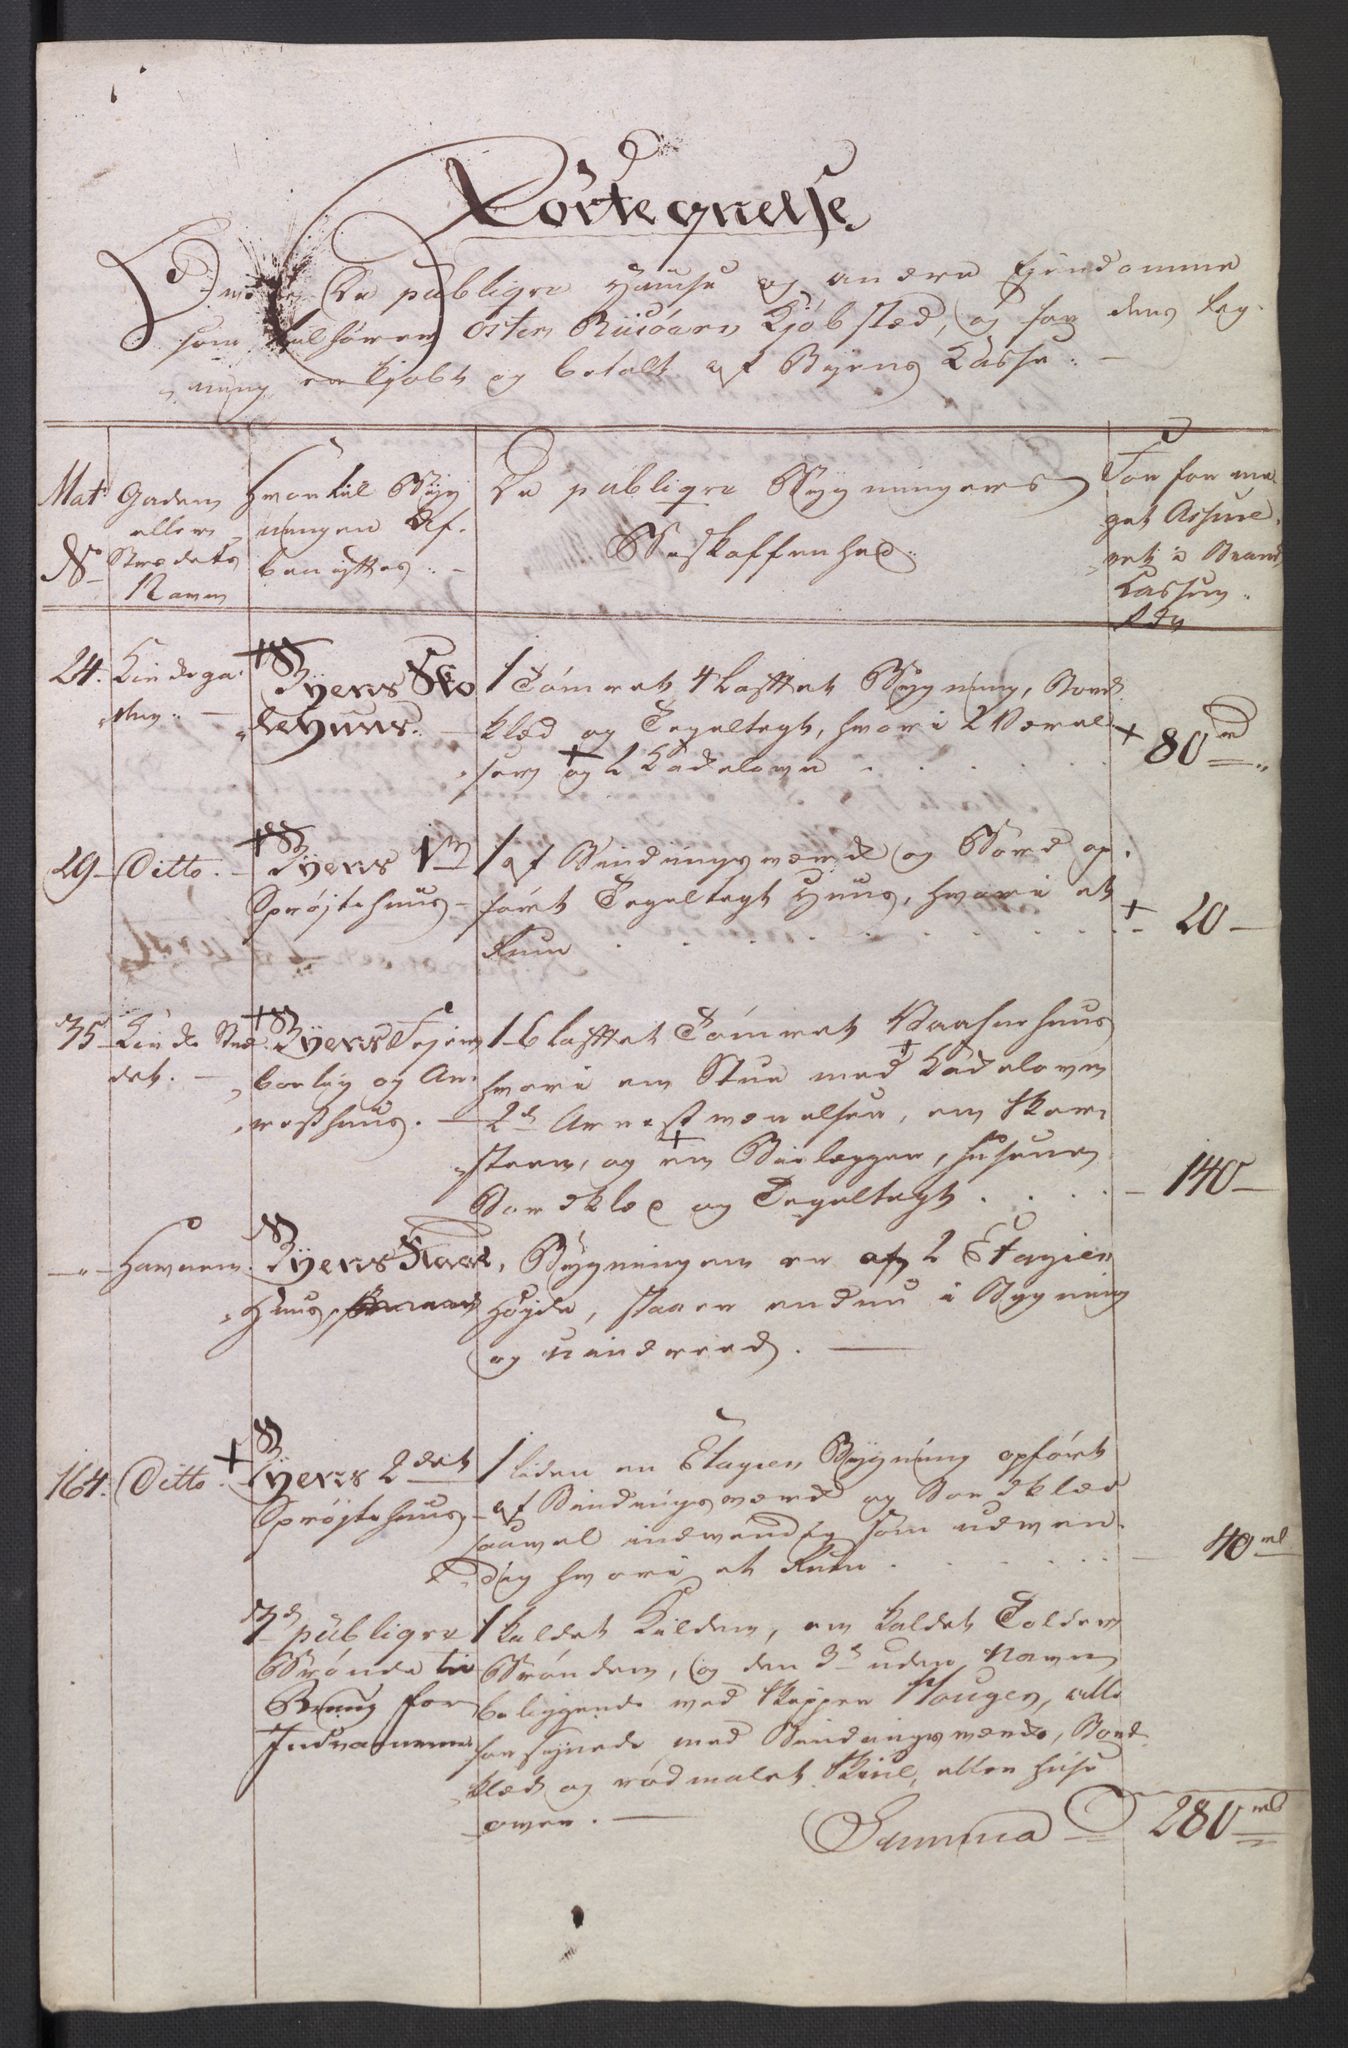 Fortegnelse
Over De publiqve Huuse og andre Eiendomme
som tilhører Öster Riisöers Kjöbstæd, og for dens Reg-
ning er kjøbt og betalt af Byens Casse.
Mat
No
Gadens
eller
Strædets
Navn
Hvortil Byg
ningen Af-
benyttes.
De publiqve Bygningers
Beskaffenhed.
For hor me
get Assure-
ret i Brand
Cassen.
Rdr
24. Kirkega-
den.
Byens Sko
lehuus.
1 Tömret 4 Laftet Bygning, Bord
klæd og Tegeltegt, hvori 2 Værel
ser og 2 Kakelovne
80 rd
29 Ditto.
Byens 1ste
Spröjtehuus
1 af Bindingsværk og Bord op-
fört Tegeltegt Huus, hvori et
Rum
20
35 Kirke Stræ
det.
Byens Tjener
boelig og Ar-
resthuus.
1 6 Laftet Tömret Vaaserhuus
hvori en Stue med Kakelovn
2de Arrest værelser, en Skor-
steen, og en Bielegger, Huset
Bordklæd og Tegeltagt
140
Havnen.
Byens
Huus
Bygningen er af 2 Etagier
Høyde, staaer endnu i Bygning
og
164. Ditto
Byens 2det
Spröjtehuus
1 liden en Etagies Bygning opfört
af Bindingsværk og Bordklæd
saavel indvendig som udven-
dig hvori et Rum
40 rd
3de publiqve
Brönde til
Brug for
Indvaanerne
1 kaldet Kilden, en kaldet Tolder
Brönden, og den 3de uden Navn
beliggende ved Skipper Hougen, alle
forsynede med Bindingsværks, Bord-
klæd og rødmalet Skuul, eller Huse
over.
Summa 280 rd